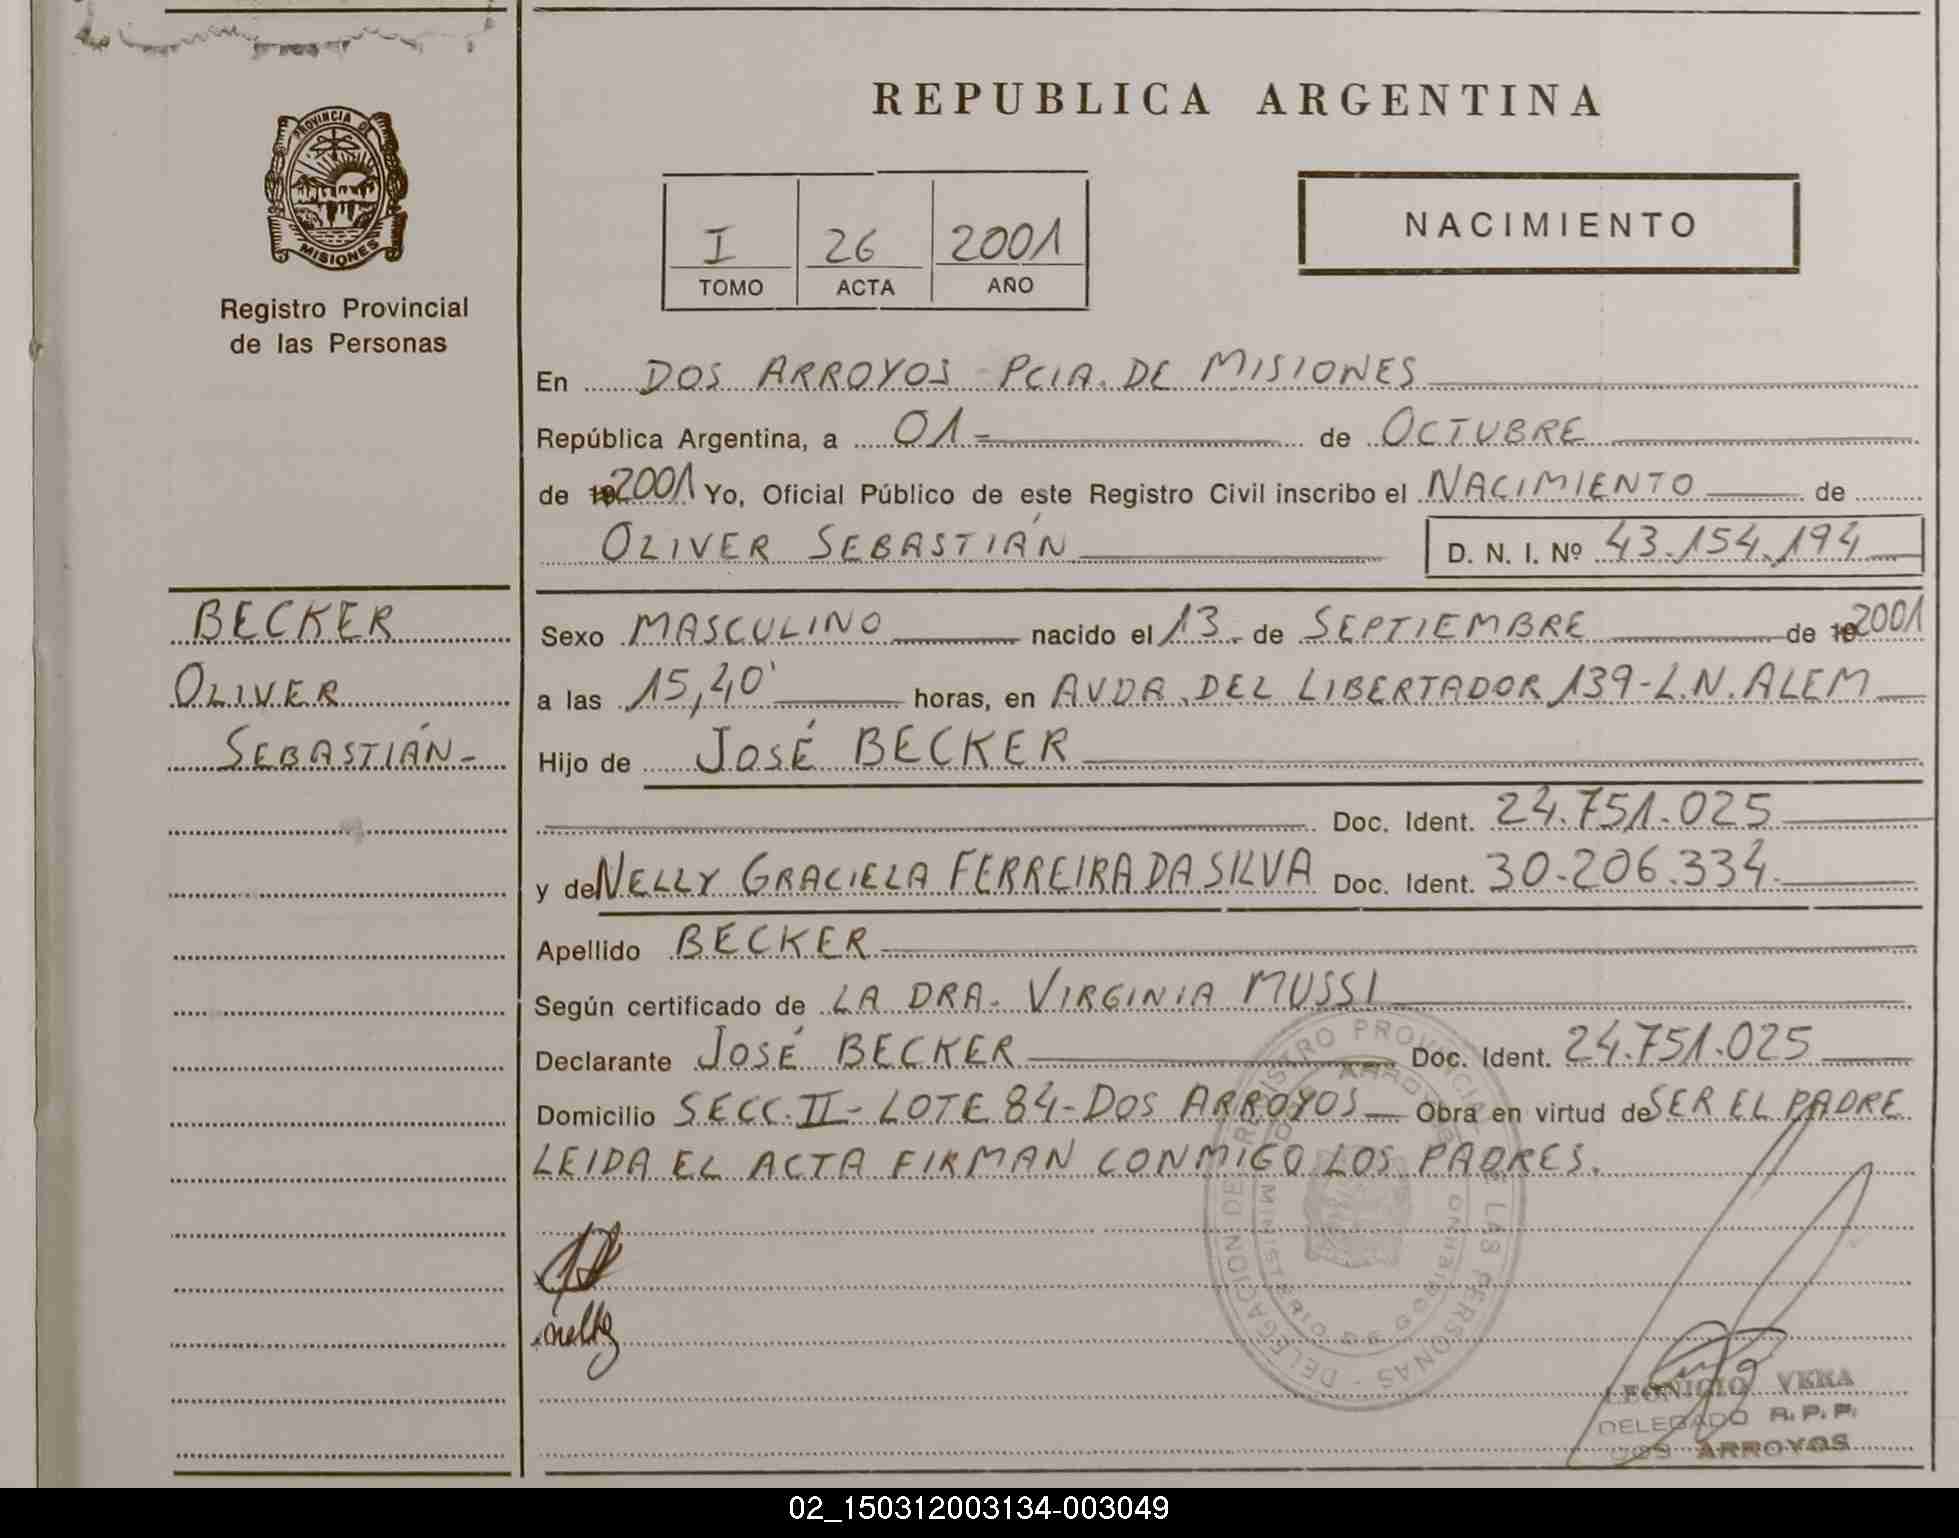 PROVINCIA DE
MISIONES
Registro Provincial
de las Personas
REPUBLICA ARGENTINA
I 26 2001
TOMO ACTA AÑO
NACIMIENTO
En DOS ARROYOS - PCIA. DE MISIONES
República Argentina, a 01- de OCTUBRE
de 19 2001 Yo, Oficial Público de este Registro Civil inscribo el NACIMIENTO de
OLIVER SEBASTIÁN D. N. I. Nº 43.154.194
BECKER
OLIVER
SEBASTIÁN-
Sexo MASCULINO nacido el 13- de SEPTIEMBRE de 19 2001
a las 15,40' horas, en AVDA. DEL LIBERTADOR 139-L.N. ALEM
Hijo de JOSÉ BECKER
Doc. Ident. 24.751.025
y de NELLY GRACIELA FERREIRA DA SILVA Doc. Ident. 30.206.334.
Apellido BECKER
Según certificado de LA DRA. VIRGINIA MUSSI
Declarante JOSÉ BECKER Doc. Ident. 24.751.025
Domicilio SECC. II - LOTE 84-DOS ARROYOS Obra en virtud de SER EL PADRE
LEIDA EL ACTA FIRMAN CONMIGO LOS PADRES.
DELEGACION DE REGISTRO PROVINCIAL DE LAS PERSONAS -
DOS ARROYOS
MINISTERIO DE GOBIERNO
nelly
LEONICIO VERA
DELEGADO R.P.P.
DOS ARROYOS
02_150312003134-003049